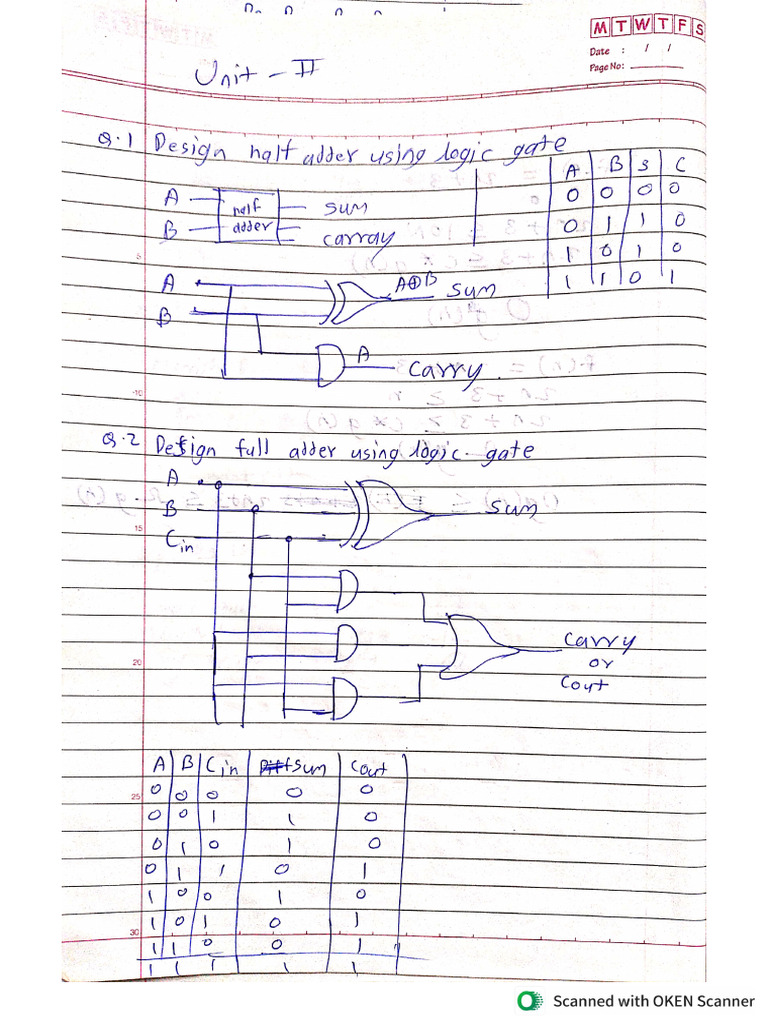 M T W T F S
Date : / /
Page No:
Unit - II
Q.1 Design half adder using logic gate
A B S C
0 0 0 0
0 1 1 0
1 0 1 0
1 1 0 1
A half sum
B adder carray
A A⊕B sum
B
A carry
Q.2 Design full adder using logic gate
A
B sum
Cin
carry
or
Cout
A B Cin sum Cout
0 0 0 0 0
0 0 1 1 0
0 1 0 1 0
0 1 1 0 1
1 0 0 1 0
1 0 1 0 1
1 1 0 0 1
1 1 1 1 1
5
10
15
20
25
30
Scanned with OKEN Scanner